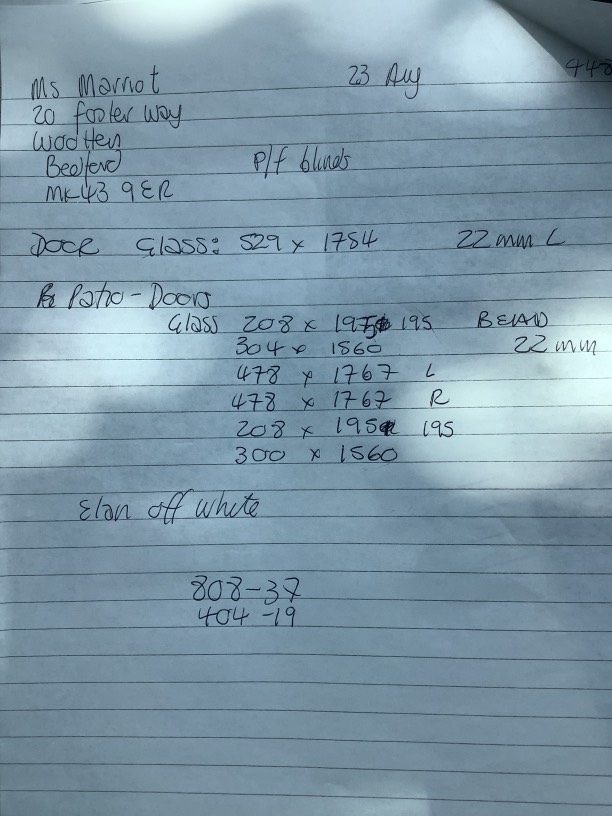 Ms Marriot 23 Aug 448
20 footer way
Wootten
Bedford P/f blinds
MK43 9ER
DOOR Glass: 529 x 1754 22mm L
Patio - Doors
Glass 208 x 195 BEAD
304 x 1560 22mm
478 x 1767 L
478 x 1767 R
208 x 195
300 x 1560
Elan off white
808-37
404-19